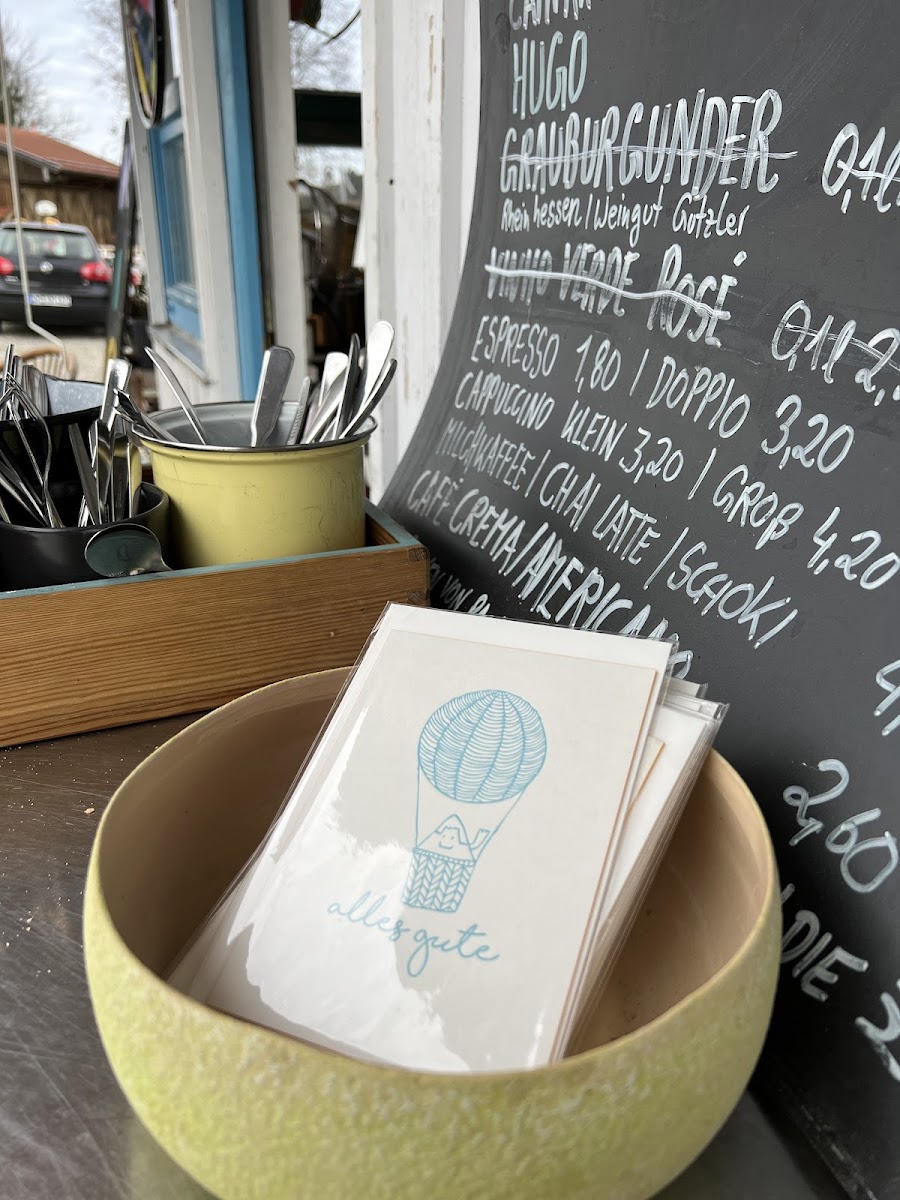 HUGO
GRAUBURGUNDER 0,1l
Rheinhessen / Weingut Gutzler
VINHO VERDE ROSÉ 0,1l 2,
ESPRESSO 1,80 | DOPPIO 3,20
CAPPUCCINO KLEIN 3,20 | GROß 4,20
MILCHKAFFEE | CHAI LATTE | SCHOKI 4,
CAFÉ CREMA / AMERICANO 2,60
VON
DIE 3
alles gute